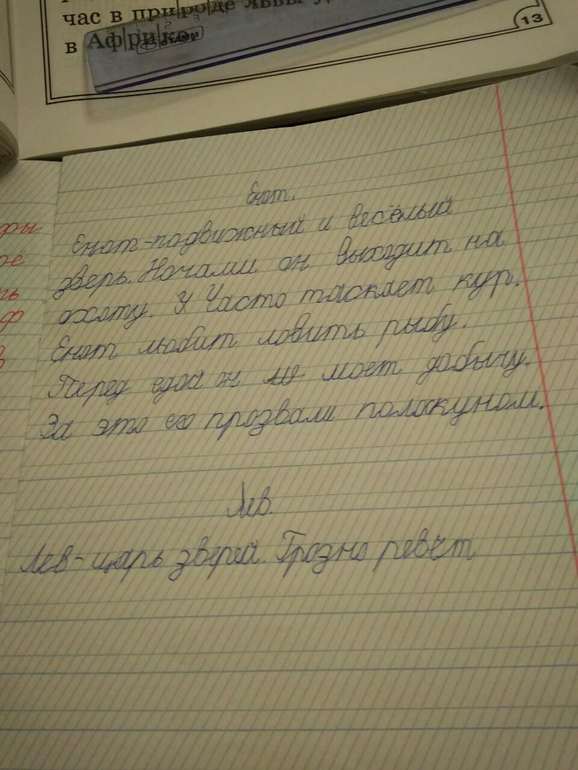 час в природе львы
в Африке.
13
Енот.
Енот-подвижный и весёлый
зверь. Ночами он выходит на
охоту. Часто таскает кур.
Енот любит ловить рыбу.
Перед едой он моет добычу.
За это его прозвали полоскуном.
Лев.
Лев-царь зверей. Грозно ревёт